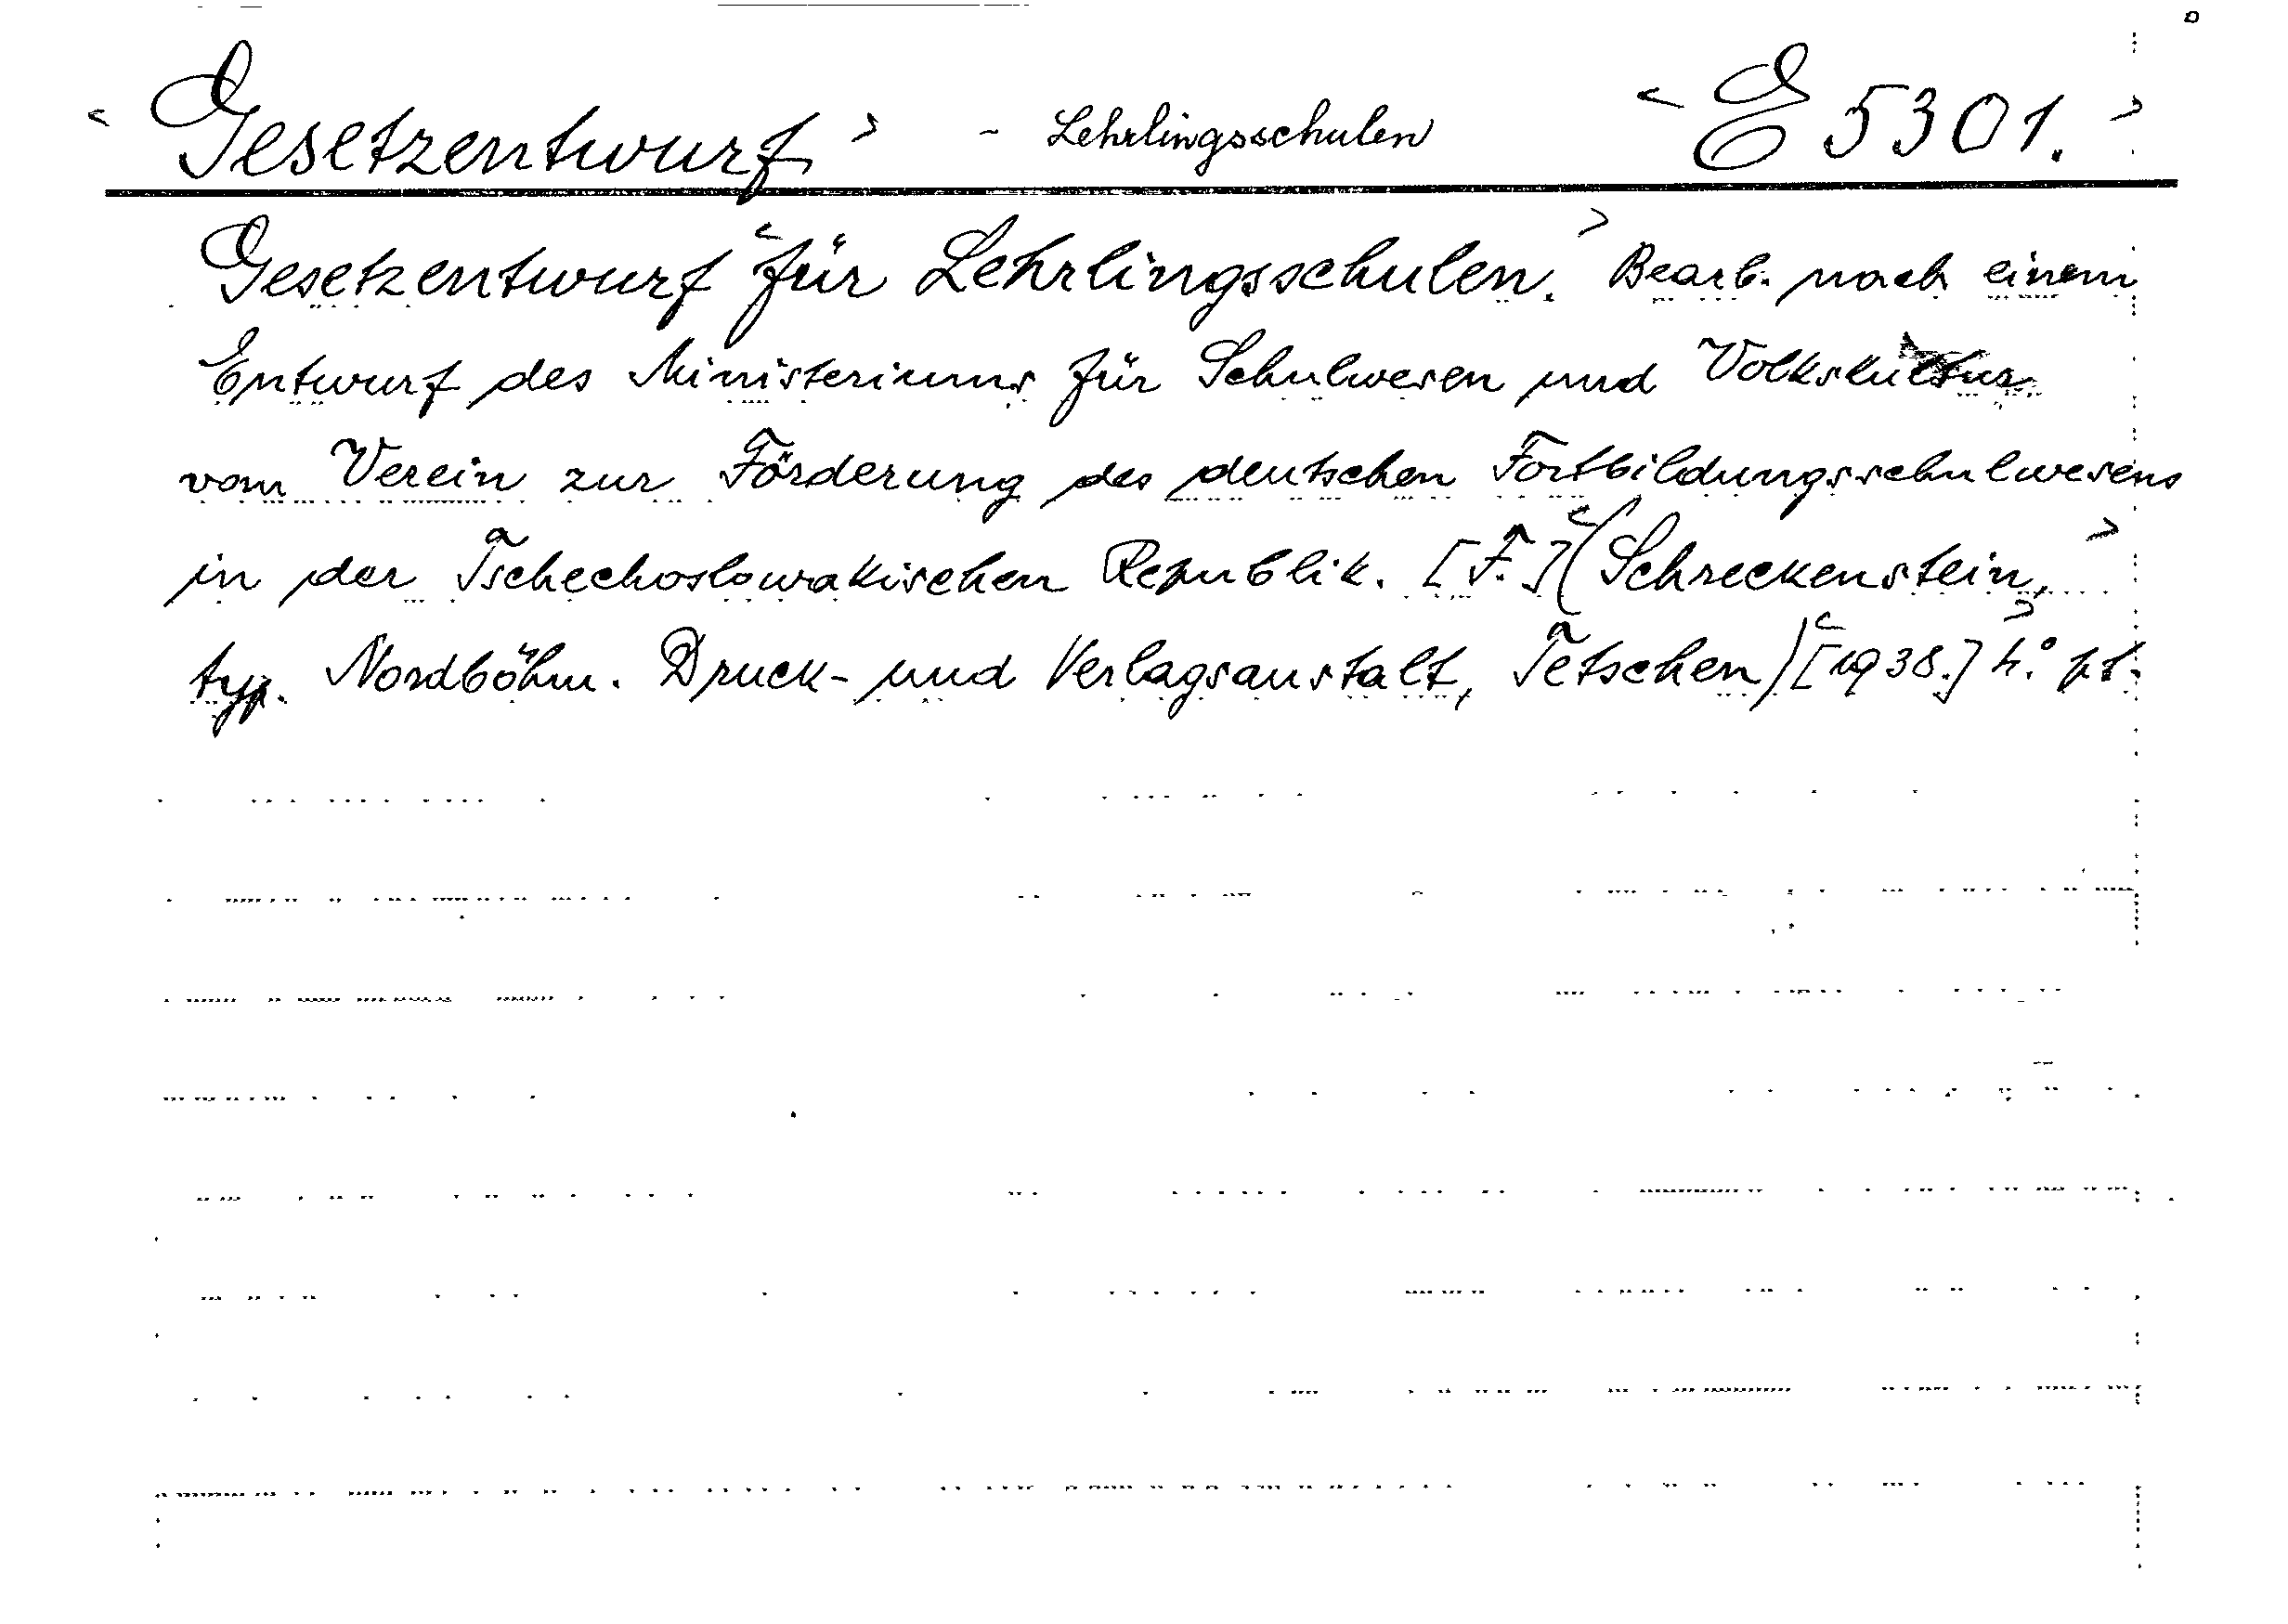 < Gesetzentwurf > - Lehrlingsschulen < E 5301. >
Gesetzentwurf < für Lehrlingsschulen. > Bearb. nach einem
Entwurf des Ministeriums für Schulwesen und Volkskultur
vom Verein zur Förderung des deutschen Fortbildungsschulwesens
in der Tschechoslowakischen Republik. [F.] < (Schreckenstein, >
typ. Nordböhm. Druck- und Verlagsanstalt, Tetschen) < [1938.] > 4.° pt.